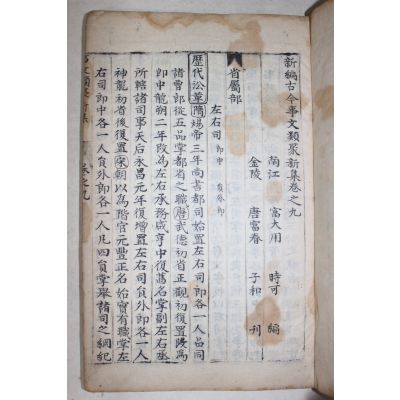 新編古今事文類聚新集卷之九
南江 富大用 時可 編
金陵 唐富春 子和 刊
省屬部
左右司 郎中 員外郎
歷代沿革 隋煬帝三年尚書都司始置左右司郎各一人品同
諸曹郎從五品掌都省之職唐武德初省正觀初復置陞爲
郎中龍朔二年改爲左右承務咸亨中復舊名掌副左右丞
所轄諸司事天后永昌元年復增置左右司員外郎各一人
神龍初省後復置宋朝以爲階官元豐正名始實有職掌左
右司郎中各一人員外郎各一人凡四員掌舉諸司之綱紀
卷之九